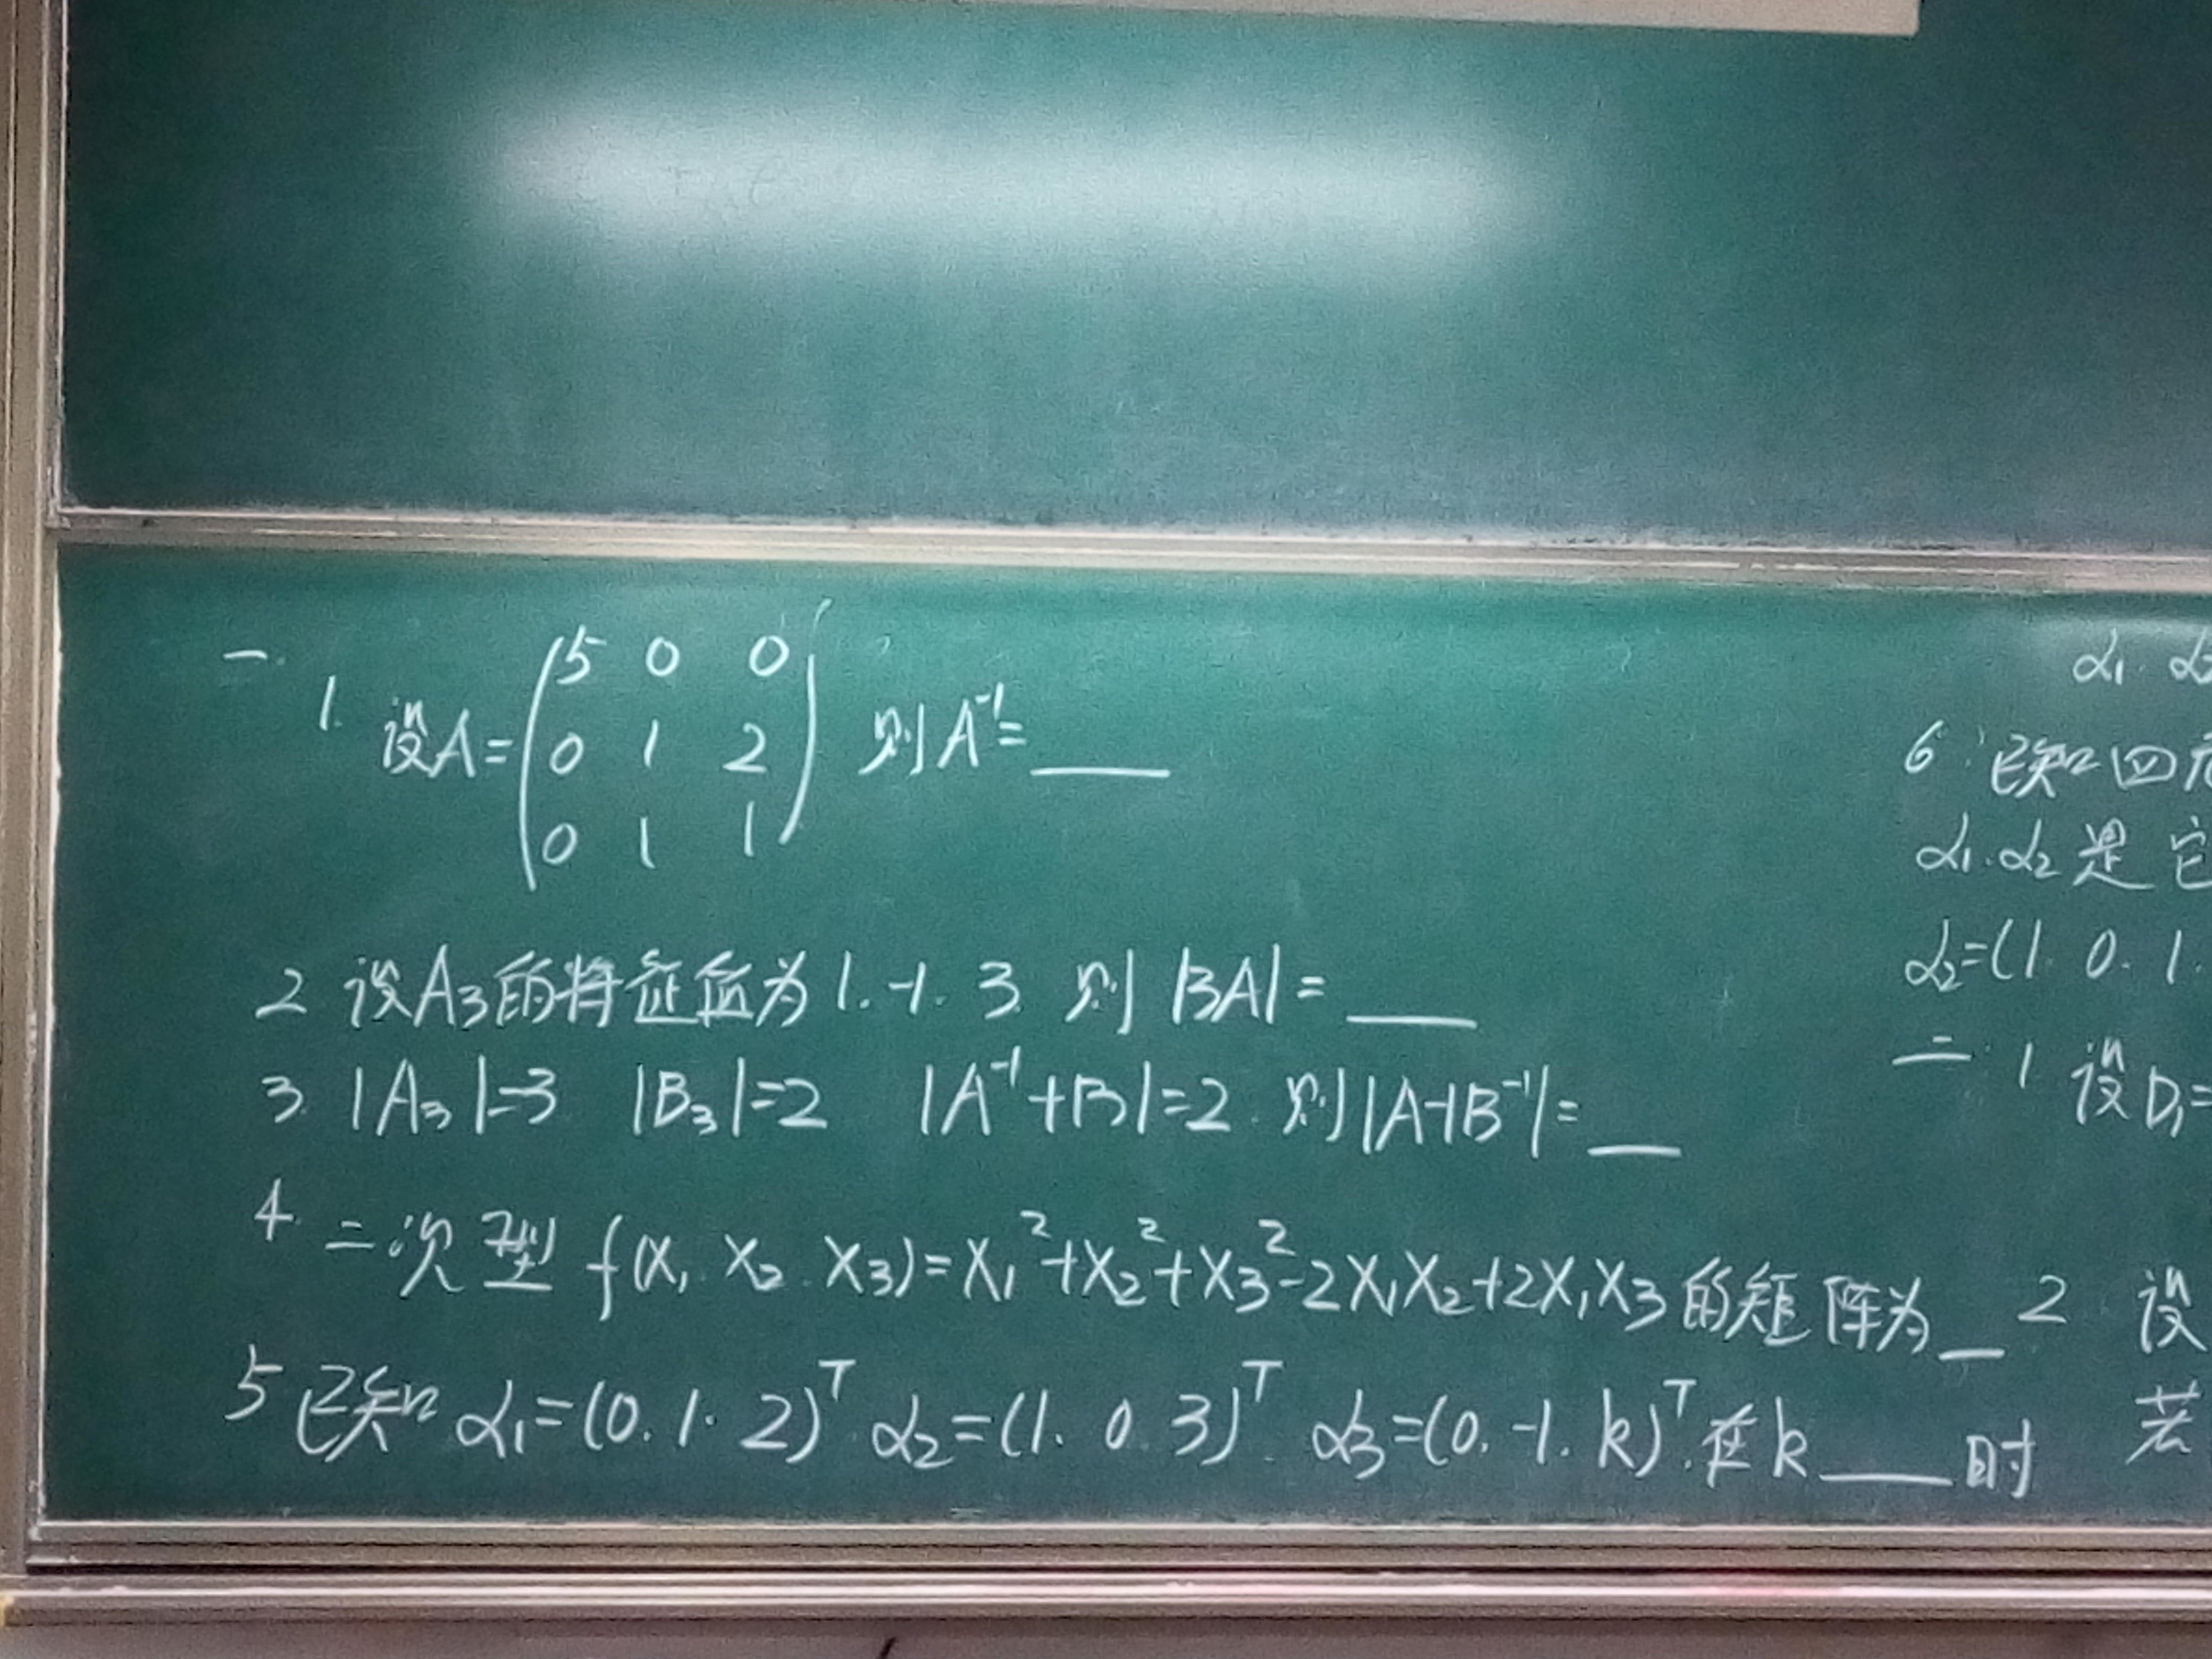 一.
1. 设A=(5 0 0
0 1 2
0 1 1) 则A⁻¹=____
2 设A₃的特征值为1.-1.3 则|3A|=____
3. |A₃|=3 |B₃|=2 |A⁻¹+B|=2. 则|A+B⁻¹|=__
4. 二次型 f(x₁ x₂ x₃)=x₁²+x₂²+x₃²-2x₁x₂+2x₁x₃的矩阵为__
5 已知α₁=(0.1.2)ᵀ α₂=(1.0 3)ᵀ. α₃=(0.-1.k)ᵀ.在k____时
α₁.
6. 已知四
α₁.α₂是它
α₂=(1. 0. 1.
二. 1 设D₁=
2 设
若